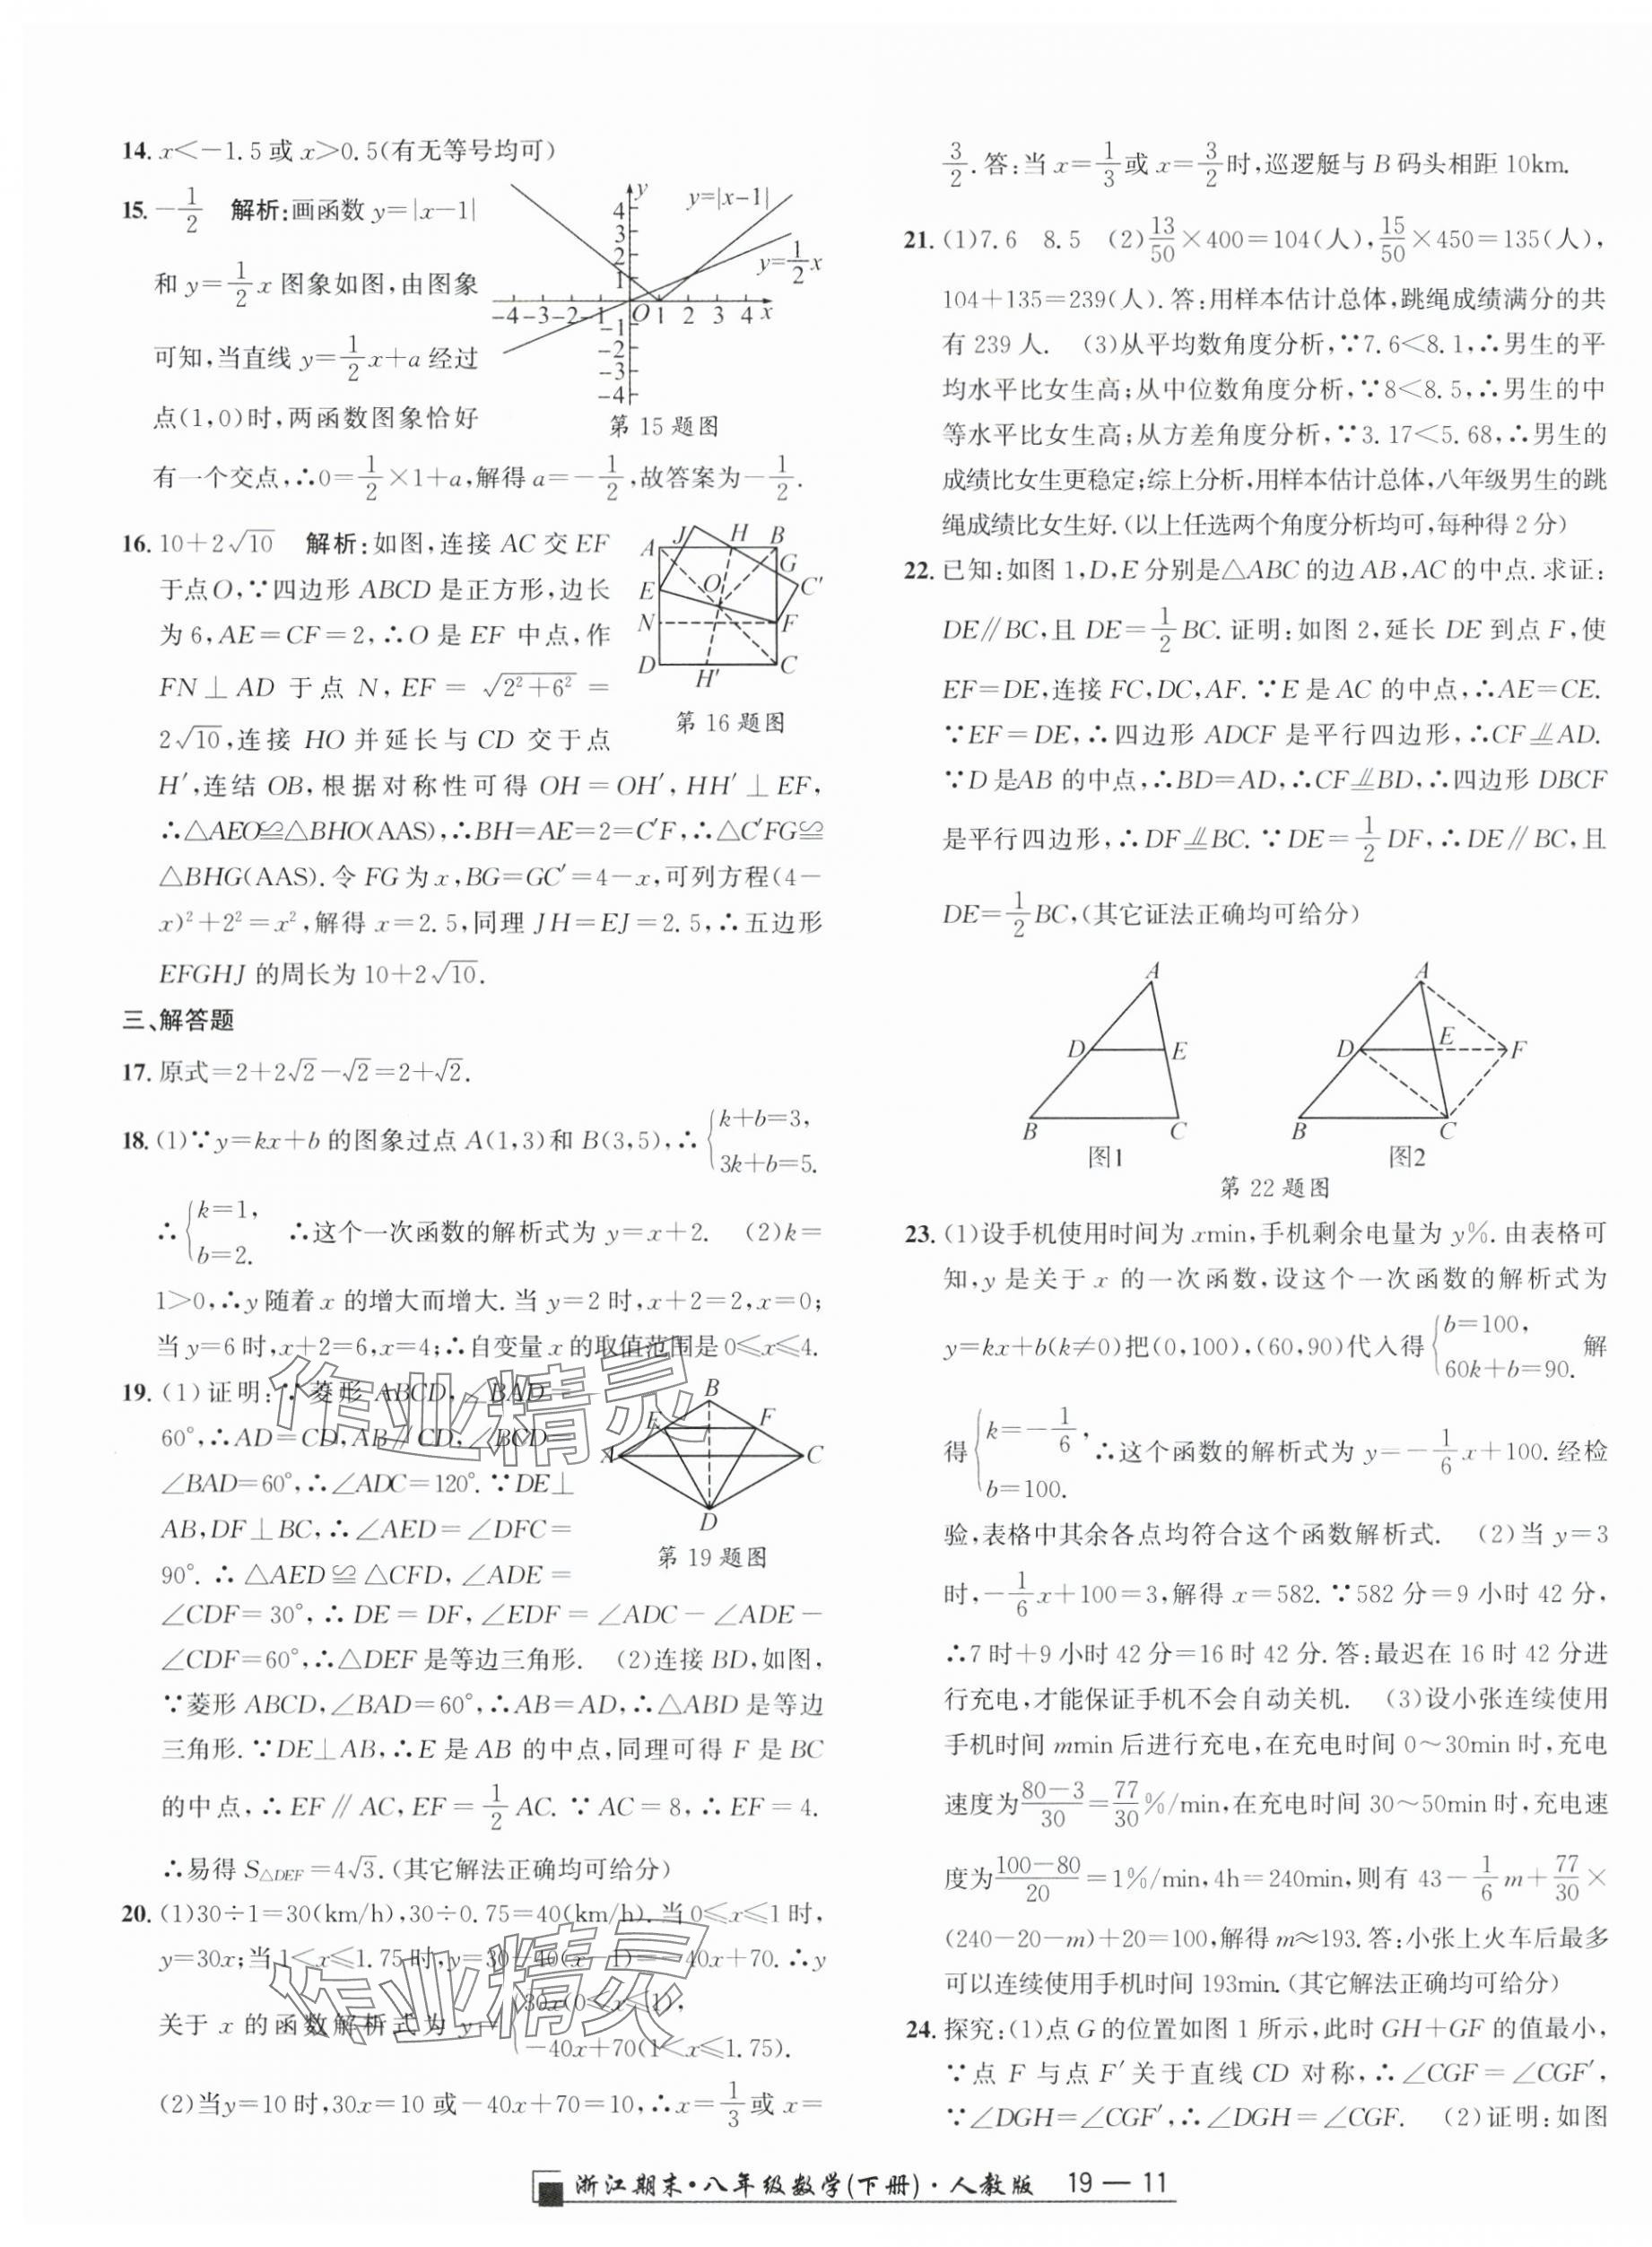 14. x<-1.5或x>0.5(有无等号均可)
15. -1/2 解析:画函数y=|x-1|
和y=1/2x图象如图,由图象
可知,当直线y=1/2x+a经过
点(1,0)时,两函数图象恰好
有一个交点,∴0=1/2×1+a,解得a=-1/2,故答案为-1/2.
y
y=|x-1|
y=1/2x
4
3
2
1
-4 -3 -2 -1 O 1 2 3 4 x
-1
-2
-3
-4
第15题图
16. 10+2√10 解析:如图,连接AC交EF
于点O,∵四边形ABCD是正方形,边长
为6,AE=CF=2,∴O是EF中点,作
FN⊥AD于点N,EF=√(2²+6²)=
2√10,连接HO并延长与CD交于点
H′,连结OB,根据对称性可得OH=OH′,HH′⊥EF,
∴△AEO≌△BHO(AAS),∴BH=AE=2=C′F,∴△C′FG≌
△BHG(AAS).令FG为x,BG=GC′=4-x,可列方程(4-
x)²+2²=x²,解得x=2.5,同理JH=EJ=2.5,∴五边形
EFGHJ的周长为10+2√10.
J H B
A
G
E O C′
N F
D H′ C
第16题图
三、解答题
17. 原式=2+2√2-√2=2+√2.
18. (1)∵y=kx+b的图象过点A(1,3)和B(3,5),∴{k+b=3,
3k+b=5.
∴{k=1, b=2. ∴这个一次函数的解析式为y=x+2. (2)k=
1>0,∴y随着x的增大而增大.当y=2时,x+2=2,x=0;
当y=6时,x+2=6,x=4;∴自变量x的取值范围是0≤x≤4.
19. (1)证明:∵菱形ABCD,∠BAD=
60°,∴AD=CD,AB∥CD,∠BCD=
∠BAD=60°,∴∠ADC=120°.∵DE⊥
AB,DF⊥BC,∴∠AED=∠DFC=
90°.∴△AED≌△CFD,∠ADE=
∠CDF=30°,∴DE=DF,∠EDF=∠ADC-∠ADE-
∠CDF=60°,∴△DEF是等边三角形. (2)连接BD,如图,
∵菱形ABCD,∠BAD=60°,∴AB=AD,∴△ABD是等边
三角形.∵DE⊥AB,∴E是AB的中点,同理可得F是BC
的中点,∴EF∥AC,EF=1/2AC.∵AC=8,∴EF=4.
∴易得S△DEF=4√3.(其它解法正确均可给分)
B
E F
A C
D
第19题图
20. (1)30÷1=30(km/h),30÷0.75=40(km/h).当0≤x≤1时,
y=30x;当1<x≤1.75时,y=30-40(x-1)=-40x+70.∴y
关于x的函数解析式为y={30x(0≤x≤1),
-40x+70(1<x≤1.75).
(2)当y=10时,30x=10或-40x+70=10,∴x=1/3或x=
3/2.答:当x=1/3或x=3/2时,巡逻艇与B码头相距10km.
21. (1)7.6 8.5 (2)13/50×400=104(人),15/50×450=135(人),
104+135=239(人).答:用样本估计总体,跳绳成绩满分的共
有239人. (3)从平均数角度分析,∵7.6<8.1,∴男生的平
均水平比女生高;从中位数角度分析,∵8<8.5,∴男生的中
等水平比女生高;从方差角度分析,∵3.17<5.68,∴男生的
成绩比女生更稳定;综上分析,用样本估计总体,八年级男生的跳
绳成绩比女生好.(以上任选两个角度分析均可,每种得2分)
22. 已知:如图1,D,E分别是△ABC的边AB,AC的中点.求证:
DE∥BC,且DE=1/2BC.证明:如图2,延长DE到点F,使
EF=DE,连接FC,DC,AF.∵E是AC的中点,∴AE=CE.
∵EF=DE,∴四边形ADCF是平行四边形,∴CF⫽AD.
∵D是AB的中点,∴BD=AD,∴CF⫽BD,∴四边形DBCF
是平行四边形,∴DF⫽BC.∵DE=1/2DF,∴DE∥BC,且
DE=1/2BC,(其它证法正确均可给分)
A
D E
B C
图1
A
D E F
B C
图2
第22题图
23. (1)设手机使用时间为xmin,手机剩余电量为y%.由表格可
知,y是关于x的一次函数,设这个一次函数的解析式为
y=kx+b(k≠0)把(0,100),(60,90)代入得{b=100, 60k+b=90. 解
得{k=-1/6, b=100. ∴这个函数的解析式为y=-1/6x+100.经检
验,表格中其余各点均符合这个函数解析式. (2)当y=3
时,-1/6x+100=3,解得x=582.∵582分=9小时42分,
∴7时+9小时42分=16时42分.答:最迟在16时42分进
行充电,才能保证手机不会自动关机. (3)设小张连续使用
手机时间mmin后进行充电,在充电时间0~30min时,充电
速度为(80-3)/30=77/30%/min,在充电时间30~50min时,充电速
度为(100-80)/20=1%/min,4h=240min,则有43-1/6m+77/30×
(240-20-m)+20=100,解得m≈193.答:小张上火车后最多
可以连续使用手机时间193min.(其它解法正确均可给分)
24. 探究:(1)点G的位置如图1所示,此时GH+GF的值最小,
∵点F与点F′关于直线CD对称,∴∠CGF=∠CGF′,
∵∠DGH=∠CGF′,∴∠DGH=∠CGF. (2)证明:如图
作业精灵
作业精灵
浙江期末·八年级数学(下册)·人教版 19—11